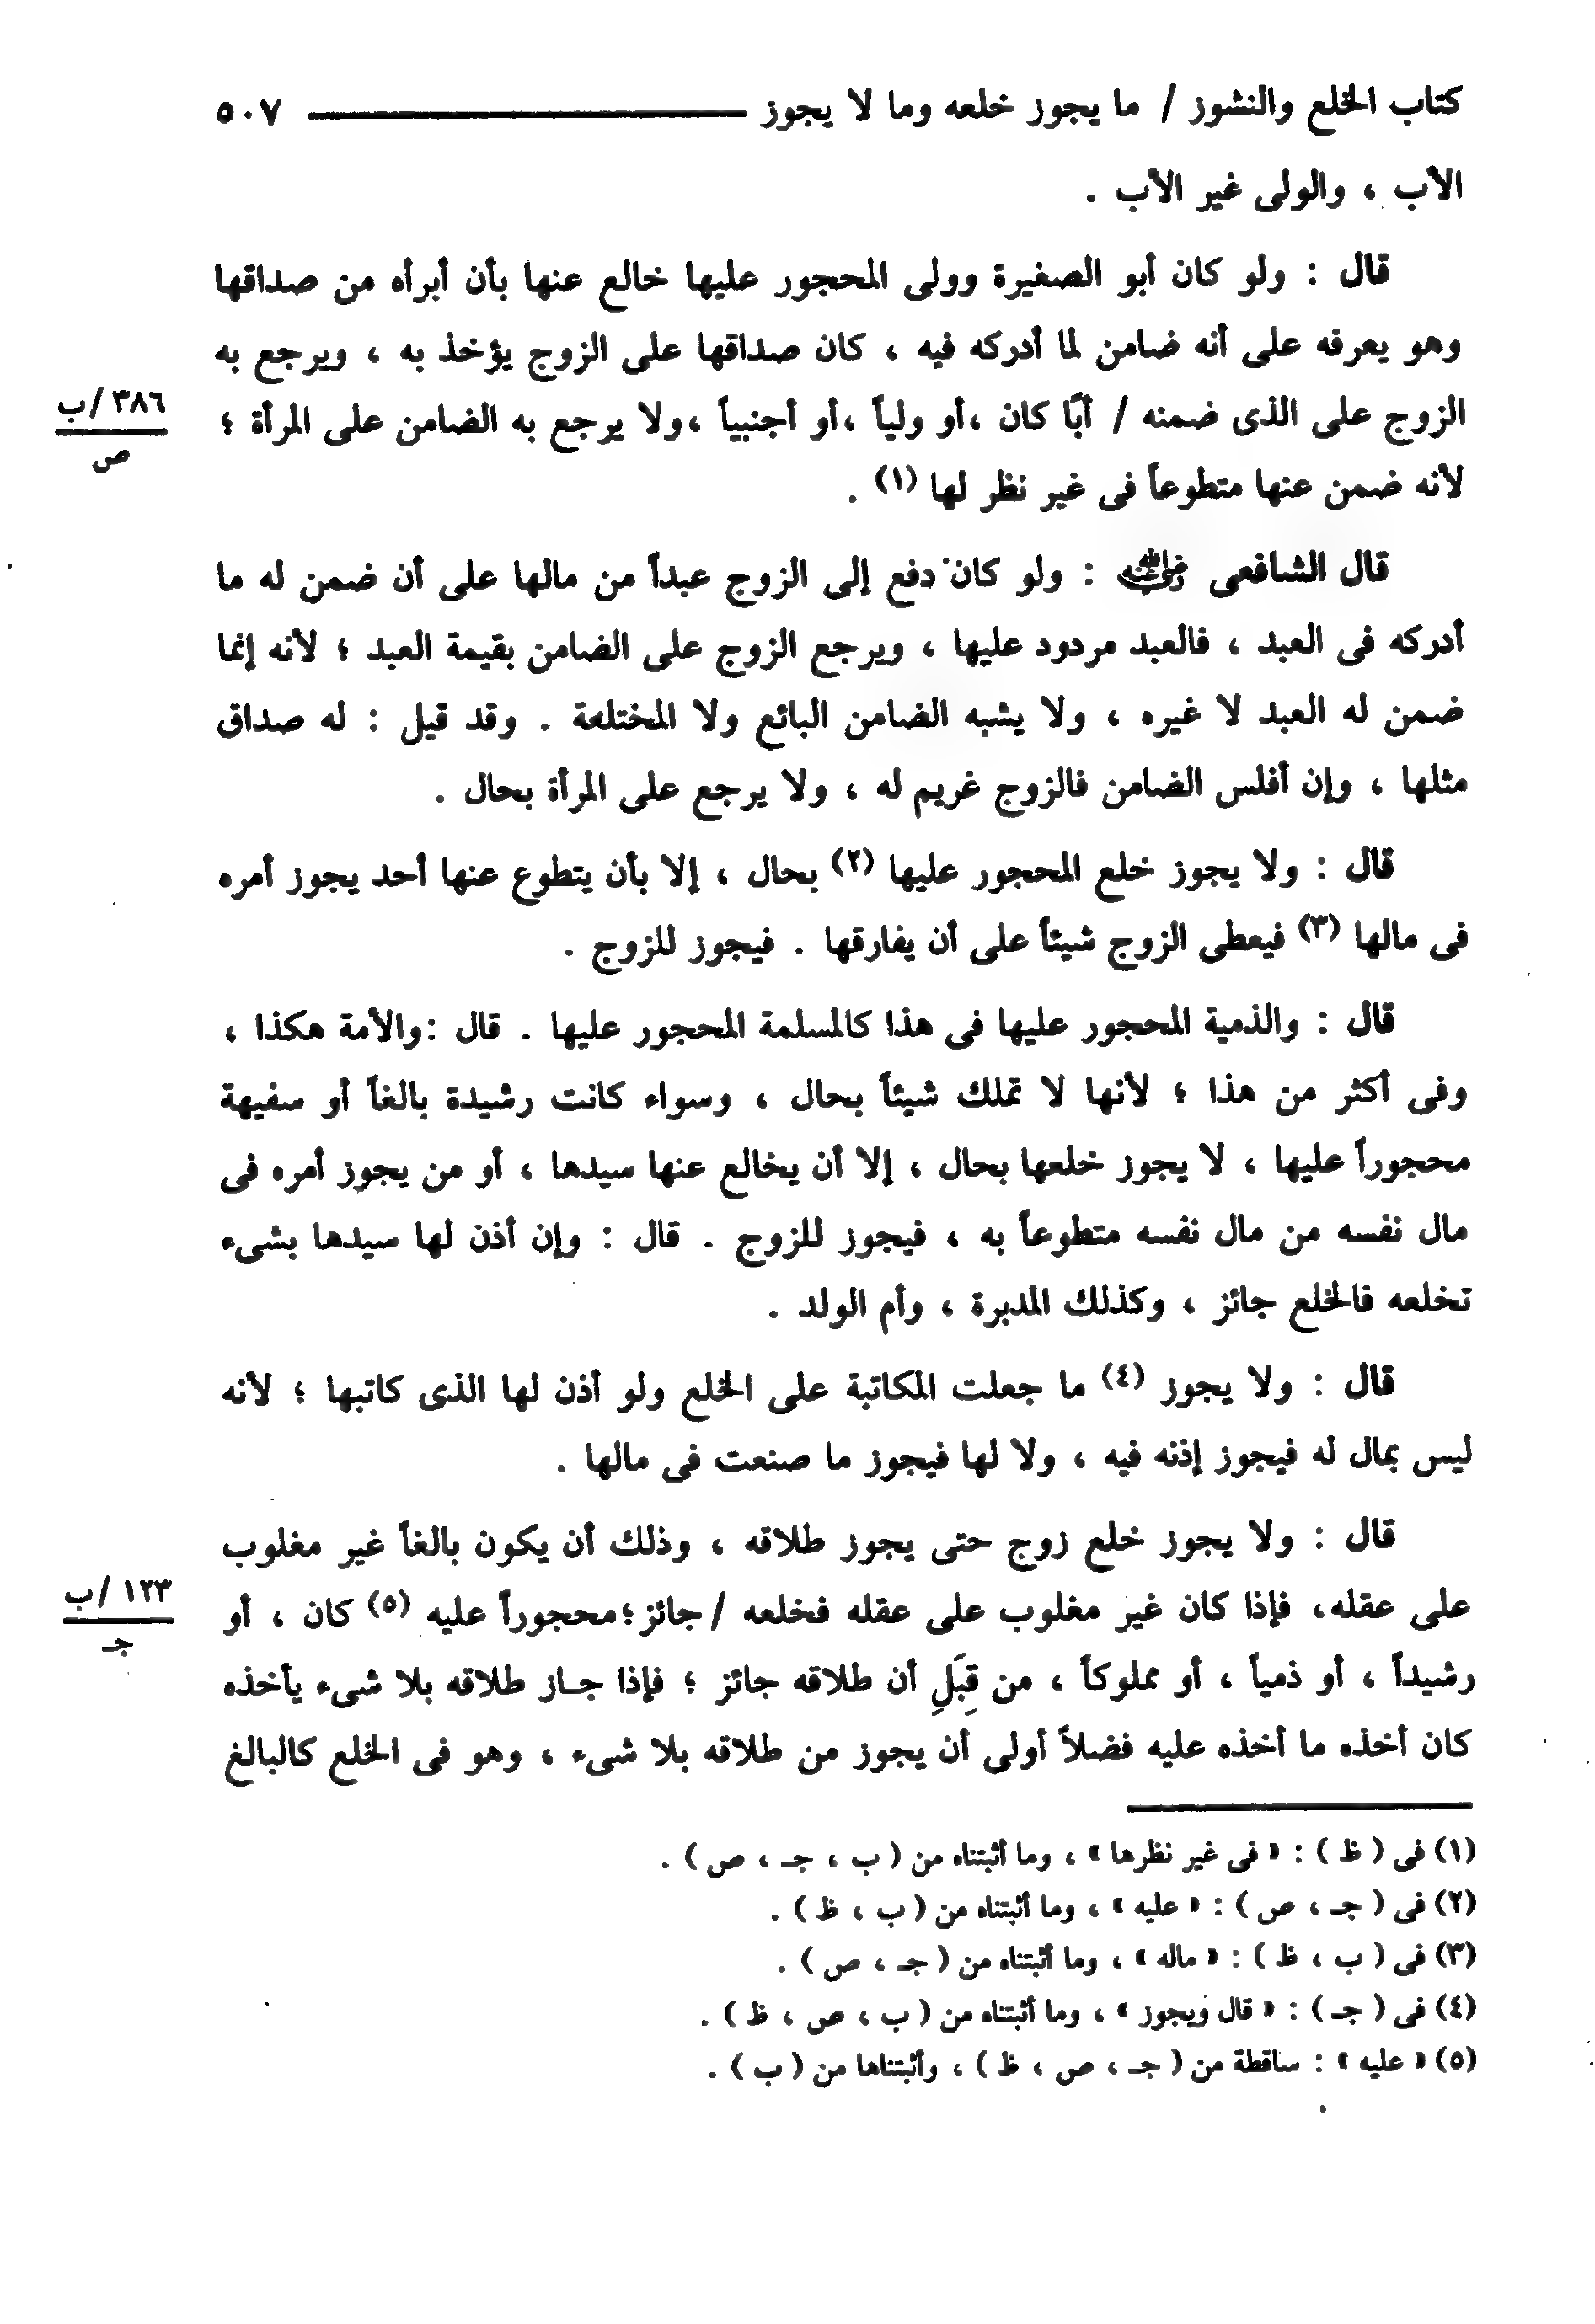 كتاب الخلع والنشوز / ما يجوز خلعه وما لا يجوز ــــــــــــ ٥٠٧
الأب ، والولى غير الأب .
قال : ولو كان أبو الصغيرة وولى المحجور عليها خالع عنها بأن أبرأه من صداقها
وهو يعرفه على أنه ضامن لما أدركه فيه ، كان صداقها على الزوج يؤخذ به ، ويرجع به
الزوج على الذى ضمنه / أبًا كان ،أو ولياً ،أو أجنبياً ،ولا يرجع به الضامن على المرأة ؛
٣٨٦ /ب
ص
لأنه ضمن عنها متطوعاً فى غير نظر لها (١) .
قال الشافعى رضي الله عنه : ولو كان دفع إلى الزوج عبداً من مالها على أن ضمن له ما
أدركه فى العبد ، فالعبد مردود عليها ، ويرجع الزوج على الضامن بقيمة العبد ؛ لأنه إنما
ضمن له العبد لا غيره ، ولا يشبه الضامن البائع ولا المختلعة . وقد قيل : له صداق
مثلها ، وإن أفلس الضامن فالزوج غريم له ، ولا يرجع على المرأة بحال .
قال : ولا يجوز خلع المحجور عليها (٢) بحال ، إلا بأن يتطوع عنها أحد يجوز أمره
فى مالها (٣) فيعطى الزوج شيئاً على أن يفارقها . فيجوز للزوج .
قال : والذمية المحجور عليها فى هذا كالمسلمة المحجور عليها . قال :والأمة هكذا ،
وفى أكثر من هذا ؛ لأنها لا تملك شيئاً بحال ، وسواء كانت رشيدة بالغاً أو سفيهة
محجوراً عليها ، لا يجوز خلعها بحال ، إلا أن يخالع عنها سيدها ، أو من يجوز أمره فى
مال نفسه من مال نفسه متطوعاً به ، فيجوز للزوج . قال : وإن أذن لها سيدها بشىء
تخلعه فالخلع جائز ، وكذلك المدبرة ، وأم الولد .
قال : ولا يجوز (٤) ما جعلت المكاتبة على الخلع ولو أذن لها الذى كاتبها ؛ لأنه
ليس بمال له فيجوز إذنه فيه ، ولا لها فيجوز ما صنعت فى مالها .
قال : ولا يجوز خلع زوج حتى يجوز طلاقه ، وذلك أن يكون بالغاً غير مغلوب
على عقله، فإذا كان غير مغلوب على عقله فخلعه /جائز؛محجوراً عليه (٥) كان ، أو
١٢٣ /ب
جـ
رشيداً ، أو ذمياً ، أو مملوكاً ، من قِبَلِ أن طلاقه جائز ؛ فإذا جـاز طلاقه بلا شىء يأخذه
كان أخذه ما أخذه عليه فضلاً أولى أن يجوز من طلاقه بلا شىء ، وهو فى الخلع كالبالغ
(١) فى ( ظ ) : « فى غير نظرها » ، وما أثبتناه من ( ب ، جـ ، ص ) .
(٢) فى ( جـ ، ص ) : « عليه » ، وما أثبتناه من ( ب ، ظ ) .
(٣) فى ( ب ، ظ ) : « ماله » ، وما أثبتناه من ( جـ ، ص ) .
(٤) فى ( جـ ) : « قال ويجوز » ، وما أثبتناه من ( ب ، ص ، ظ ) .
(٥) « عليه » : ساقطة من ( جـ ، ص ، ظ ) ، وأثبتناها من ( ب ) .